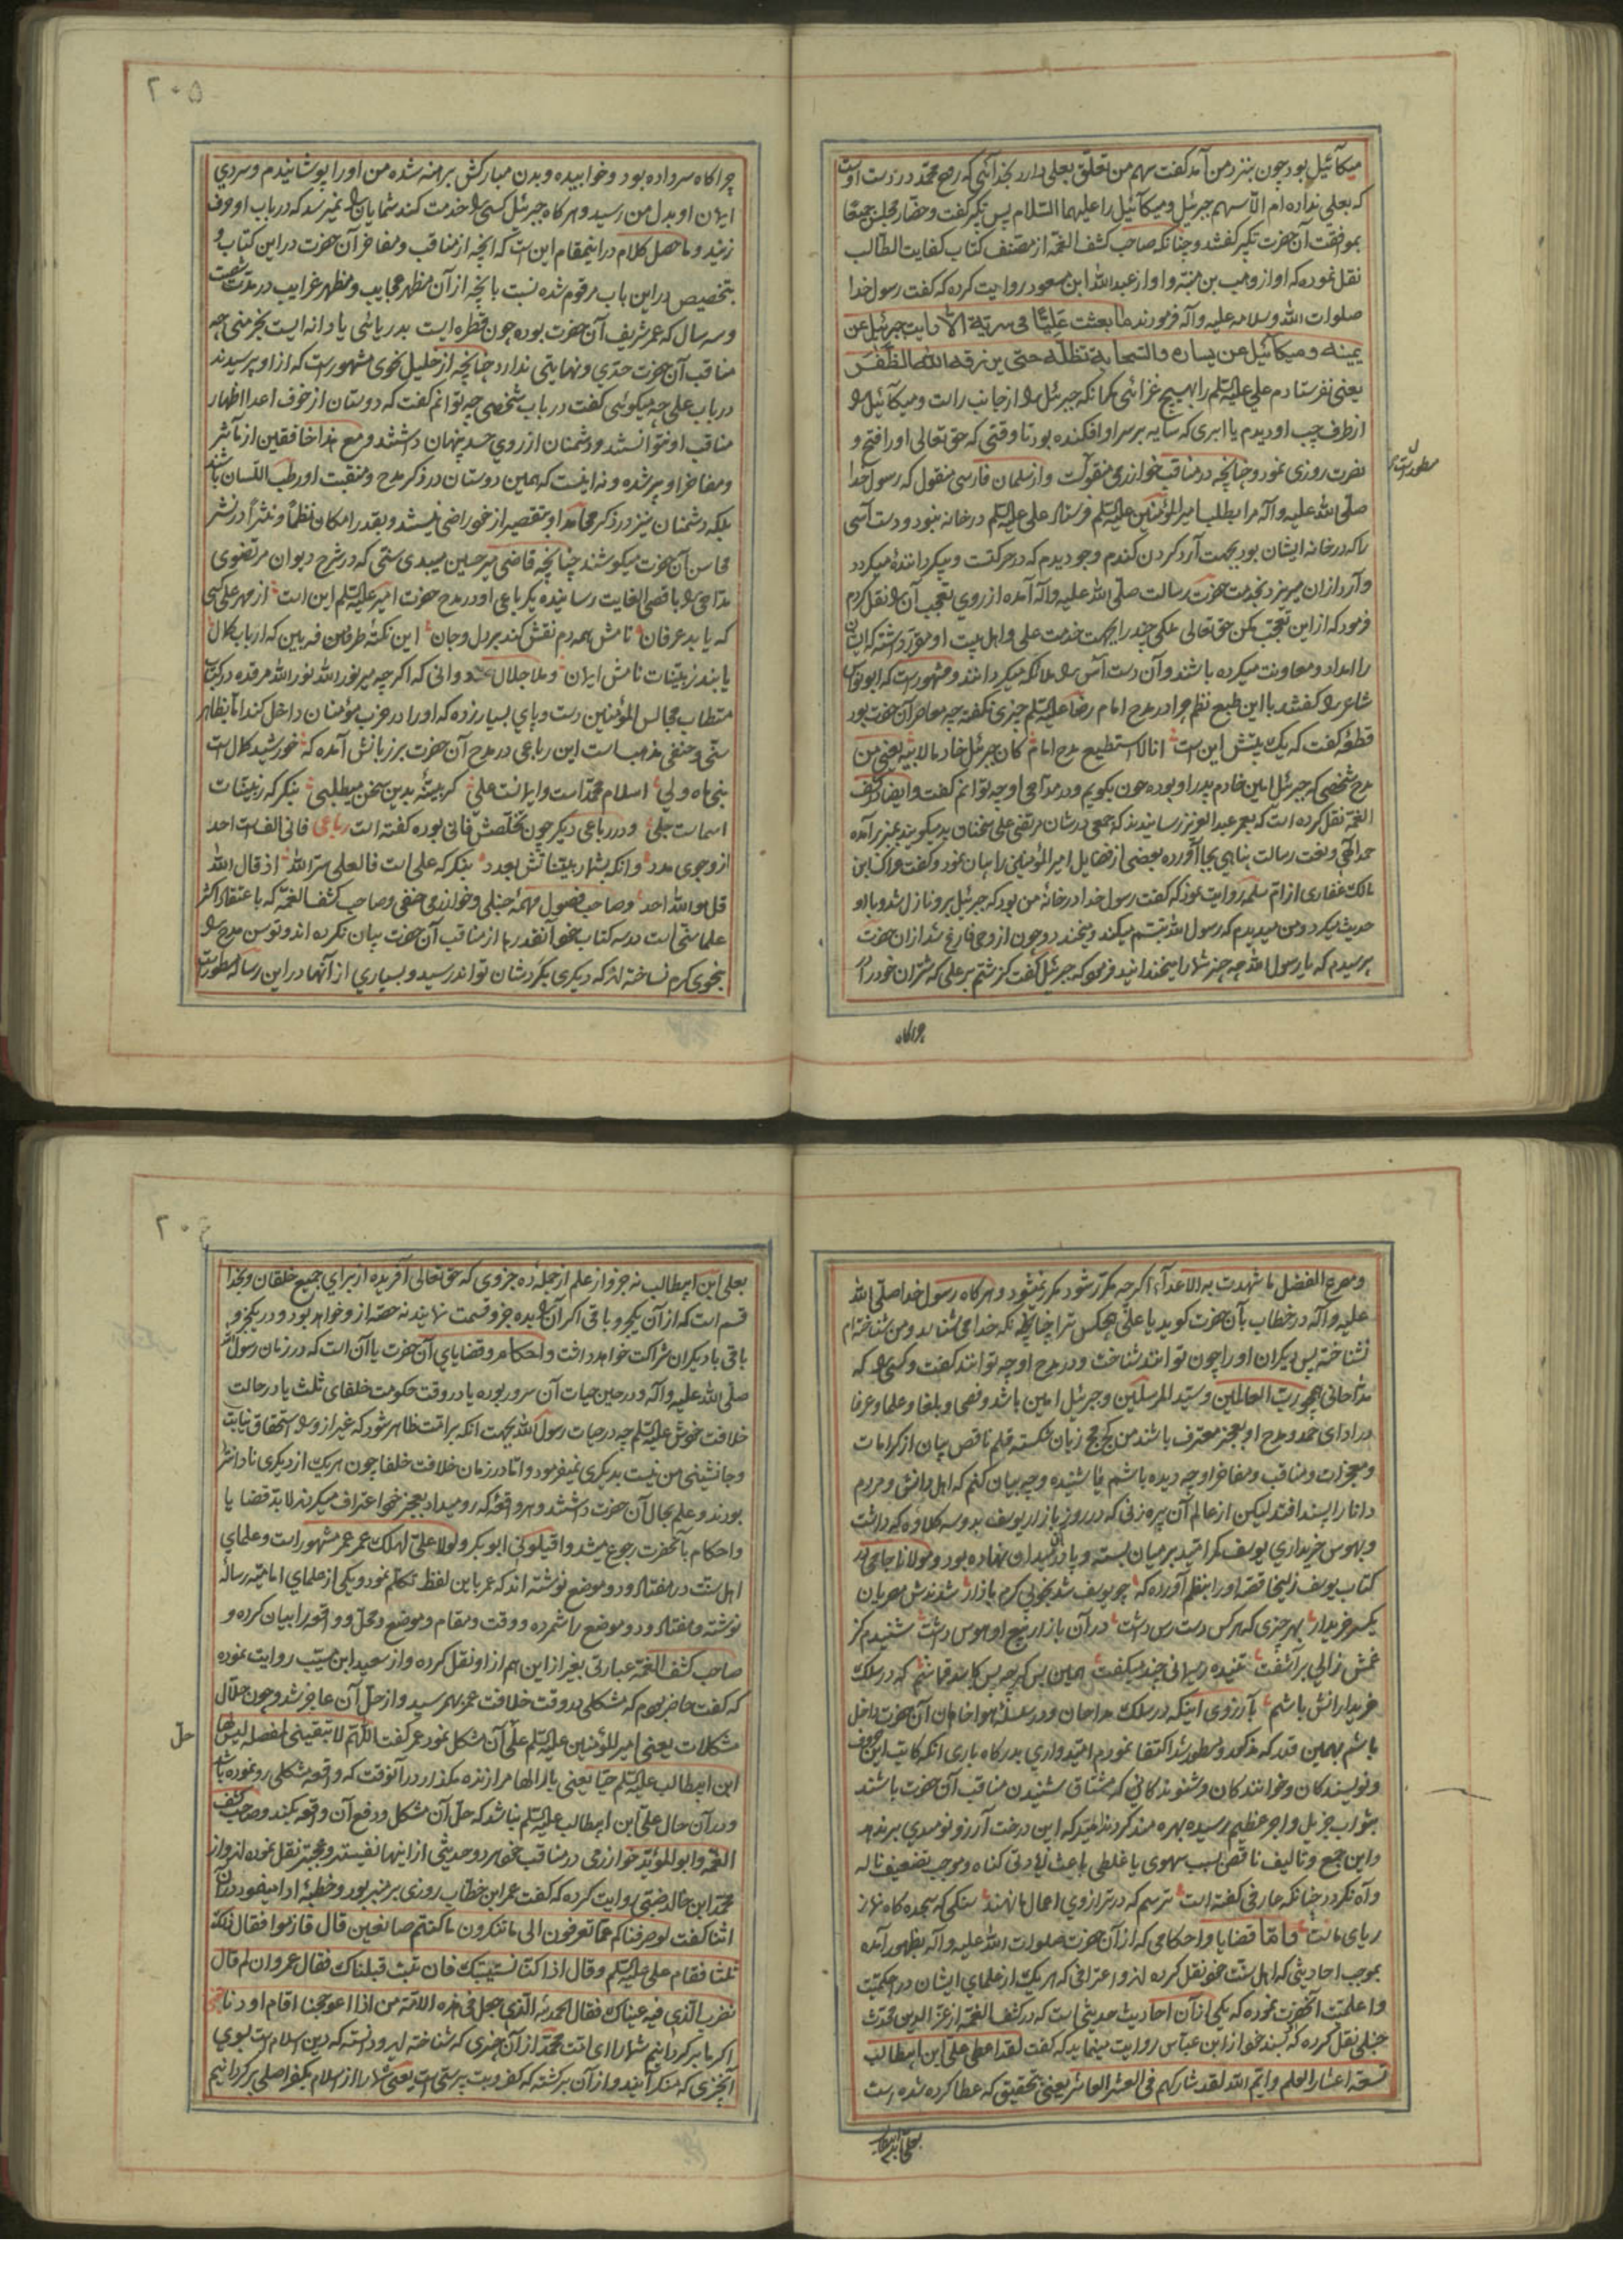 میکائیل بود چون بنزد من آمد گفت سهم من تعلق بعلی دارد بخدائی که روح محمد در دست اوست
که بعلی نداده ام الا سهم جبرئیل و میکائیل را علیهما السلام پس تکبیر گفت و حضار مجلس جمیعا
بموافقت آن حضرت تکبیر گفتند و چنانکه صاحب کشف الغمه از مصنف کتاب کفایت الطالب
نقل نموده که او از وهب بن منبه و او از عبد الله ابن مسعود روایت کرده که گفت رسول خدا
صلوات الله وسلامه علیه وآله فرمودند ما بعثت علیا فی سریة الا رایت جبرئیل عن
یمینه ومیکائیل عن یساره والسحابة تظله حتی یرزقه الله الظفر
یعنی نفرستادم علی علیه السلم را بهیچ غزائی مگر آنکه جبرئیل را از جانب راست و میکائیل را
از طرف چپ او دیدم با ابری که سایه بر سر او افکنده بود تا وقتی که حق تعالی او را فتح و
نصرت روزی نمود و چنانچه در مناقب خوارزمی منقولست و از سلمان فارسی منقول که رسول خدا
مسطور است
صلی الله علیه وآله مرا بطلب امیر المؤمنین علیه السلم فرستاد علی علیه السلم در خانه نبود و دست آسی
را که در خانه ایشان بود بجهت آرد کردن گندم و جو دیدم که در حرکتست و بی گرداننده میگردد
و آرد از آن میریزد بخدمت حضرت رسالت صلی الله علیه وآله آمده از روی تعجب آنرا نقل کردم
فرمود که از این تعجب مکن حق تعالی ملکی چند را بجهت خدمت علی و اهل بیت او مقرر داشته که ایشان
را امداد و معاونت میکرده باشند و آن دست آس را ملائکه میگردانند و مشهور است که ابو نواس
شاعر را گفتند با این طبع نظم چرا در مدح امام رضا علیه السلم چیزی نگفته چه معاصر آن حضرت بود
قطعه گفت که یک بیتش این است انا لا استطیع مدح امام کان جبرئیل خادما لابیه یعنی من
مدح شخصی که جبرئیل امین خادم پدر او بوده چون بگویم و در مداحی او چه توانم گفت و ایضا در کشف
الغمه نقل کرده است که بعمر عبد العزیز رسانیدند که جمعی در شان مرتضی علی سخنان بد میگویند بمنبر برآمده
حمد الهی و نعت رسالت پناهی بجا آورده بعضی از فضایل امیر المؤمنین را بیان نمود و گفت عراک ابن
مالک غفاری از ام سلمه روایت نموده که گفت رسول خدا در خانه من بود که جبرئیل برو نازل شد و با او
حدیث میکرد و من میدیدم که رسول الله تبسم میکند و بخندد و چون از وحی فارغ شد از آن حضرت
پرسیدم که یا رسول الله چه چیز شما را میخندانید فرمود که جبرئیل گفت گذشتم بر علی که شتران خود را
چراگاه
۲۰۵
چراگاه سر داده بود و خوابیده و بدن مبارکش برهنه شده من او را پوشانیدم و سردی
ایمان او بدل من رسید و هرگاه جبرئیل کسی را خدمت کند شمایان را نمیرسد که در باب او حرف
زنید و ما حصل کلام در اینمقام این است که آنچه از مناقب و مفاخر آن حضرت در این کتاب و
بتخصیص در این باب مرقوم شده نسبت بآنچه از آن مظهر عجایب و مظهر غرایب در مدت شصت
و سه سال که عمر شریف آن حضرت بوده چون قطره ایست بدریائی یا دانه ایست بخرمنی چه
مناقب آن حضرت حدی و نهایتی ندارد چنانچه از خلیل نحوی مشهور است که از او پرسیدند
در باب علی چه میگوئی گفت در باب شخصی چه توانم گفت که دوستان از خوف اعدا اظهار
مناقب او نتوانستند و دشمنان از روی حسد پنهان داشتند و مع هذا خافقین از مآثر
و مفاخر او پر شده و نه اینست که همین دوستان در ذکر مدح و منقبت او رطب اللسان باشند
بلکه دشمنان نیز در ذکر محامد او بتقصیر از خود راضی نیستند و بقدر امکان نظما و نثرا در نشر
محاسن آن حضرت میکوشند چنانچه قاضی میر حسین میبدی سنی که در شرح دیوان مرتضوی
مداحی را باقصی الغایت رسانیده یکرباعی او در مدح حضرت امیر علیه السلم این است از مهر علی کسی
که یابد عرفان نامش همه دم نقش کند بر دل و جان این نکته طرفه بین که ارباب کمال
یابند ز بینات نامش ایمان و ملا جلال دوانی که اگر چه میر نور الله نور الله مرقده در کتاب
مستطاب مجالس المؤمنین دست و پای بسیار زده که او را در حزب مؤمنان داخل کند اما بظاهر
سنی و حنفی مذهب است این رباعی در مدح آن حضرت بر زبانش آمده که خورشید کمال است
نبی ماه ولی اسلام محمد است و ایمانست علی گر بینه بدین سخن میطلبی بنگر که ز بینات
اسماست جلی و در رباعی دیگر چون تخلصش فانی بوده گفته است رباعی فانی الف است احد
ازو جوی مدد وانکه بشمار بیناتش بعدد بنگر که علی است فالعلی سر الله از قال الله
قل هو الله احد و صاحب فصول مهمه حنبلی و خوارزمی حنفی و صاحب کشف الغمه که باعتقاد اکثر
علما سنی است در سه کتاب خود آنقدرها از مناقب آن حضرت بیان نکرده اند و توسن مدح را
بنحوی گرم نساخته اند که دیگری بگردشان تواند رسید و بسیاری از آنها در این رساله مسطور است
و مدح الفضل ما شهدت به الاعداء اگر چه مکرر شود مکرر نمیشود و هرگاه رسول خدا صلی الله
علیه وآله در خطاب بآن حضرت گوید یا علی هیچکس ترا چنانچه خدا میشناسد و من شناخته ام
نشناخته پس دیگران او را چون توانند شناخت و در مدح او چه توانند گفت و کسی را که
مداحانی همچو رب العالمین و سید المرسلین و جبرئیل امین باشد و فصحا و بلغا و علما و عرفا
در ادای حمد و مدح او بعجز معترف باشند من کج مج زبان شکسته قلم ناقص بیان از کرامات
و معجزات و مناقب و مفاخر او چه دیده باشم یا شنیده و چه بیان کنم که اهل دانش و مردم
دانا را پسند افتد لیکن از عالم آن پیره زنی که در روز بازار یوسف بدو سه کلاوه که داشت
و بهوس خریداری یوسف کمر امید بر میان بسته و پا در آن میدان نهاده بود و مولانا جامی در
کتاب یوسف زلیخا قصه او را بنظم آورده که چو یوسف شد بخوبی گرم بازار شدندش مصریان
یکسر خریدار بهر چیزی که هر کس دست رس داشت در آن بازار بیع او هوس داشت شنیدم کز
غمش زالی برآشفت تنیده ریسمانی چند میگفت همین بس گرچه بس کاسد قماشم که در سلک
خریدارانش باشم بآرزوی اینکه در سلک مداحان و در سلسله هواخواهان آن حضرت داخل
باشم بهمین قدر که مذکور و مسطور شد اکتفا نمودم امیدواری بدرگاه باری آنکه کاتب این حروف
و نویسندگان و خوانندگان و شنوندگانی که مشتاق شنیدن مناقب آن حضرت باشند
بثواب جزیل و اجر عظیم رسیده بهره مند گردند امید که این درخت آرزو نومیدی بر ندهد
و این جمع و تالیف ناقص بسبب سهوی یا غلطی باعث زیادتی گناه و موجب تضعیف ناله
و آه نگردد چنانکه عارفی گفته است ترسم که در ترازوی اعمال ما نهند سنگی که سجده گاه نماز
ریای ماست و اما قضایا و احکامی که از آن حضرت صلوات الله علیه وآله بظهور آمده
بموجب احادیثی که اهل سنت خود نقل کرده اند و اعترافی که هر یک از علمای ایشان در احکمیت
و اعلمیت آنحضرت نموده که یکی از آن احادیث حدیثی است که در کشف الغمه از عز الدین محدث
حنبلی نقل کرده که بسند خود از ابن عباس روایت مینماید که گفت لقد اعطی علی ابن ابیطالب
تسعة اعشار العلم وایم الله لقد شارکهم فی العشر العاشر یعنی بتحقیق که عطا کرده شده است
بعلی ابن ابیطالب
۲۰۶
بعلی ابن ابیطالب نه جزو از علم از جمله ده جزوی که حق تعالی آفریده از برای جمیع خلقان و بخدا
قسم است که از آن یکجزو باقی اگر آنرا بده جزو قسمت نمایند نه حصه از و خواهد بود و در یکجزو
باقی با دیگران شراکت خواهد داشت و احکام و قضایای آن حضرت یا آن است که در زمان رسول الله
صلی الله علیه وآله و در حین حیات آن سرور بوده یا در وقت حکومت خلفای ثلث یا در حالت
خلافت خودش علیه السلم چه در حیات رسول الله بجهت آنکه بر امت ظاهر شود که غیر از و را استحقاق نیابت
و جانشینی من نیست بدیگری نمیفرمود و اما در زمان خلافت خلفا چون هر یک از دیگری نادانتر
بودند و علم بحال آن حضرت داشتند و هر واقعه که رو میداد بعجز خود اعتراف میکردند لابد قضایا
و احکام بآنحضرت رجوع میشد و اقیلونی ابو بکر و لولا علی لهلک عمر عمر مشهور است و علمای
اهل سنت در هفتاد و دو موضع نوشته اند که عمر باین لفظ تکلم نمود و یکی از علمای امامیه رساله
نوشته و هفتاد و دو موضع را شمرده و وقت و مقام و موضع و محل و واقعه را بیان کرده و
صاحب کشف الغمه عبارتی بغیر از این هم از او نقل کرده و از سعید ابن مسیب روایت نموده
که گفت حاضر بودم که مشکلی در وقت خلافت عمر بهم رسید و از حل آن عاجز شد و چون حلال
حل
مشکلات یعنی امیر المؤمنین علیه السلم علی آن مشکل نمود عمر گفت اللهم لا تبقینی لمعضلة لیس لها
ابن ابیطالب علیه السلم حیا یعنی بار الها مرا زنده مگذار در آنوقت که واقعه مشکلی رو نموده باشد
و در آن حال علی ابن ابیطالب علیه السلم نباشد که حل آن مشکل و دفع آن واقعه بکند و صاحب کشف
الغمه و ابو المؤید خوارزمی در مناقب خود هر دو حدیثی از اینها نفیستر و عجبتر نقل نموده اند و از
محمد ابن خالد ضبی روایت کرده که گفت عمر ابن خطاب روزی بر منبر بود و خطبه ادا مینمود در آن
اثنا گفت لو صرفناکم عما تعرفون الی ما تنکرون ما کنتم صانعین قال فازموا فقال ذلک
ثلثا فقام علی علیه السلم وقال اذا کنا نستتیبک فان تبت قبلناک فقال عمر وان لم قال
نضرب الذی فیه عیناک فقال الحمد لله الذی جعل فی هذه الامة من اذا اعوججنا اقام اودنا یعنی
اگر ما برگردانیم شما را ای امت محمد از آن چیزی که شناخته اید و دانسته که دین اسلام است بسوی
آنچیزی که منکر آنید و از آن برگشته که کفر و بت پرستی است یعنی شما را از اسلام بکفر اصلی برگردانیم